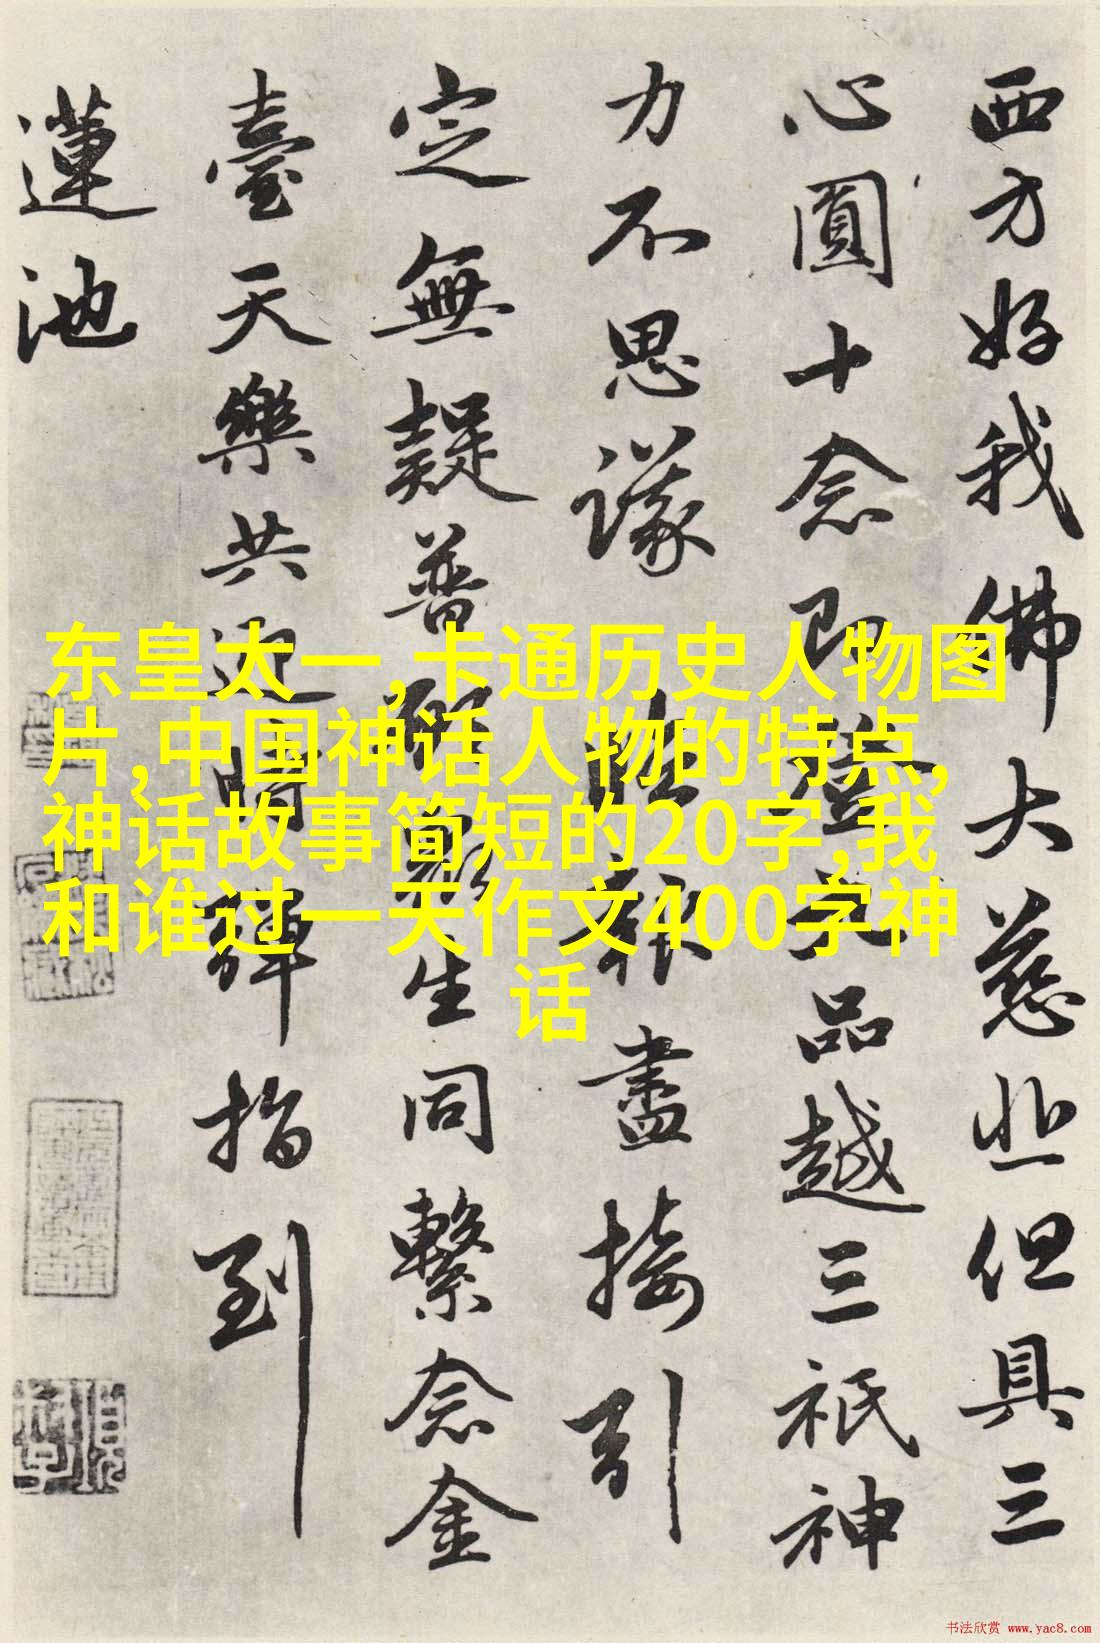 西方好我佛大慈悲但具三
心圓十念即登上品越三祇神
力不思議報盡接引
定無疑普願眾生同繫念金
臺天樂共迎時彈指到
蓮池
东皇太一,卡通历史人物图
片,中国神话人物的特点,
神话故事简短的20字,我
和谁过一天作文400字神
话
书法欣赏 www.yac8.com